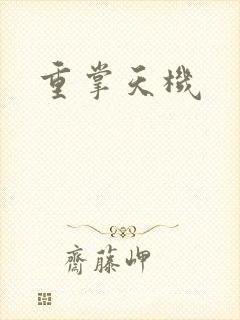 重掌天機
齋藤岬